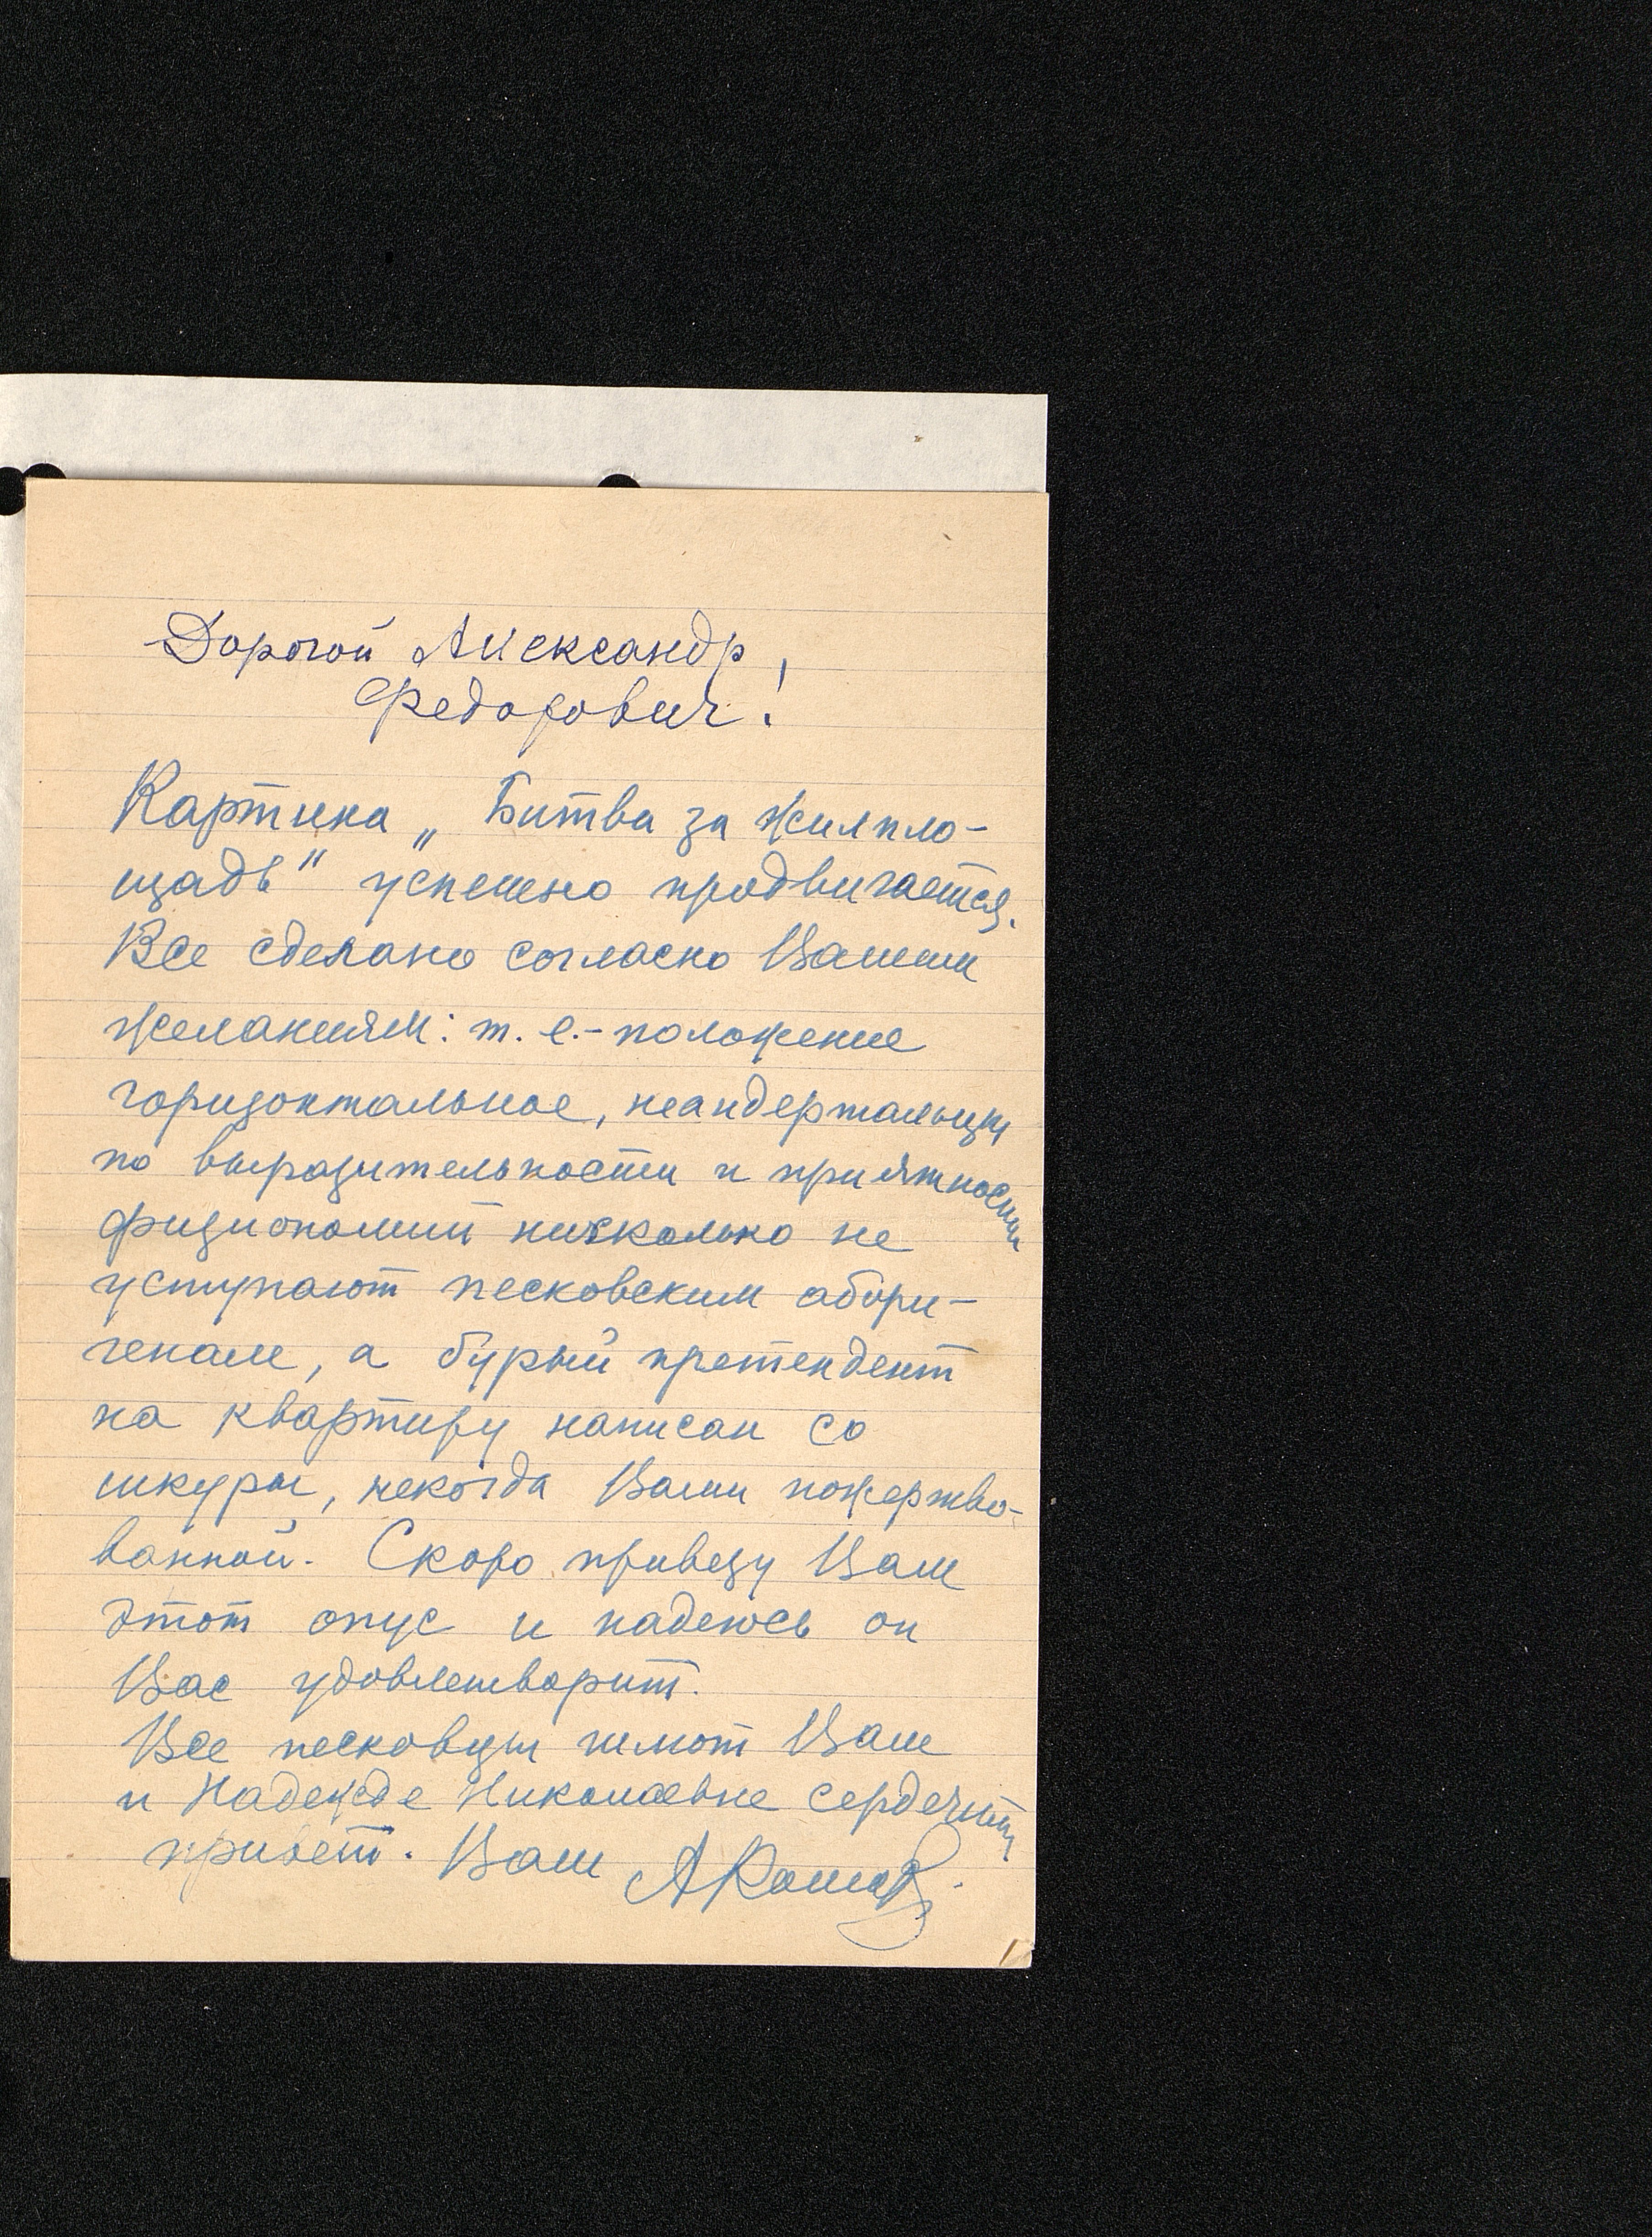 Дорогой Александр
Федорович!
Картина „Битва за жилпло-
щадь" успешно продвигается.
Все сделано согласно Вашим
желаниям: т. е. - положение
горизонтальное, неандертальцы
по выразительности и приятности
физиономий нисколько не
уступают песковским абори-
генам, а бурый претендент
на квартиру написан со
шкуры, некогда Вами пожертво-
ванной. Скоро привезу Вам
этот опус и надеюсь он
Вас удовлетворит.
Все песковцы шлют Вам
и Надежде Николаевне сердечный
привет. Ваш А Комаров.